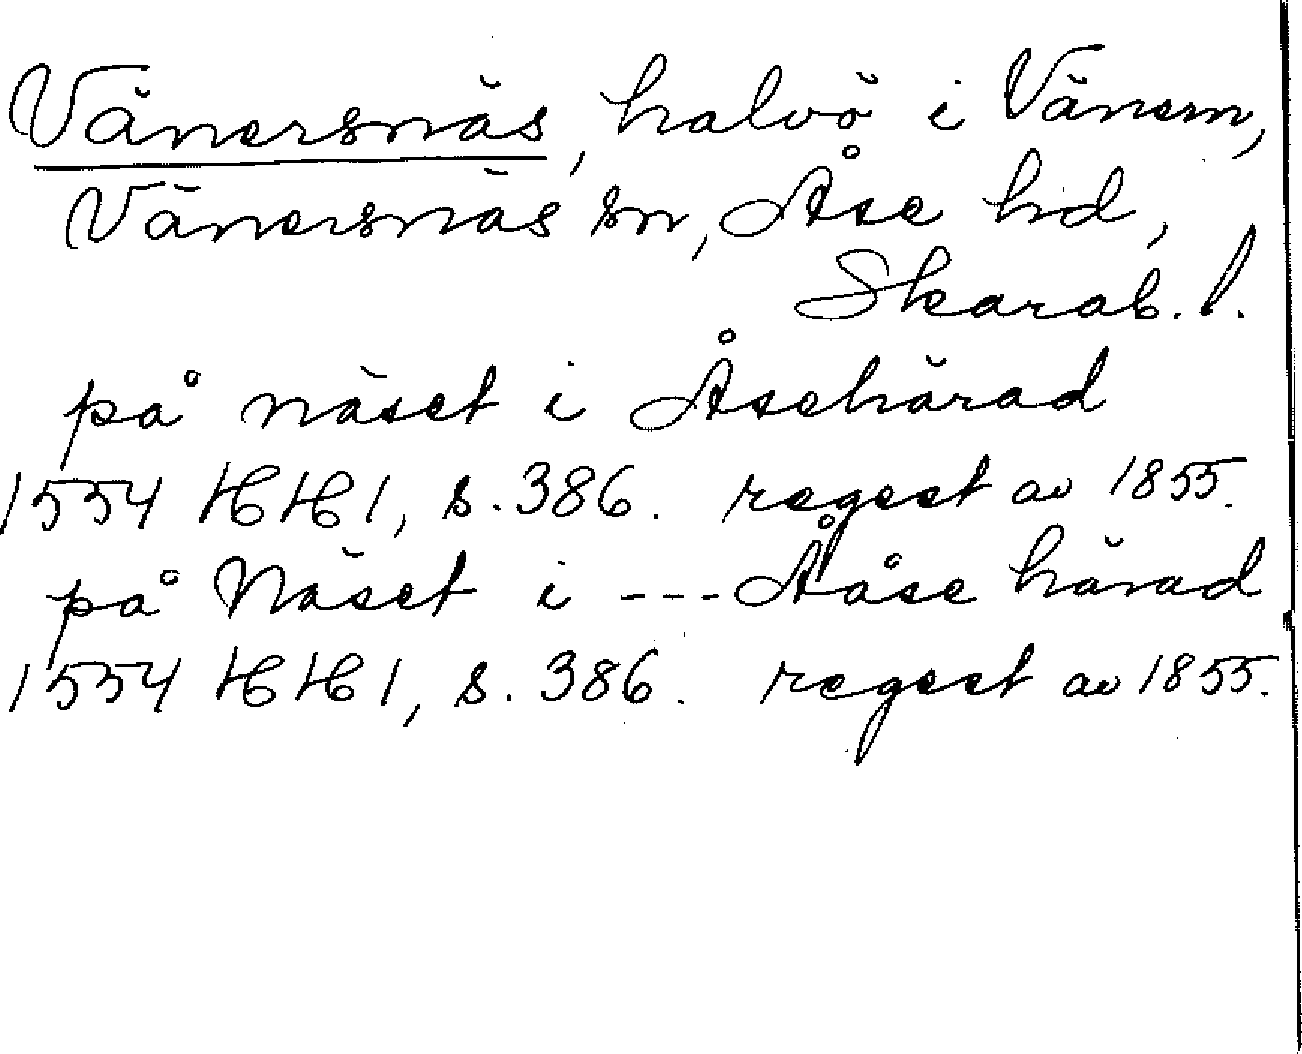 Vänersnäs, halvö i Vänern,
Vänersnäs sn, Åse hd,
Skarab. l.
på näset i Åsehärad
1554 HH 1, s. 386. regest av 1855.
på Näset i --- Ååse härad
1554 HH 1, s. 386. regest av 1855.